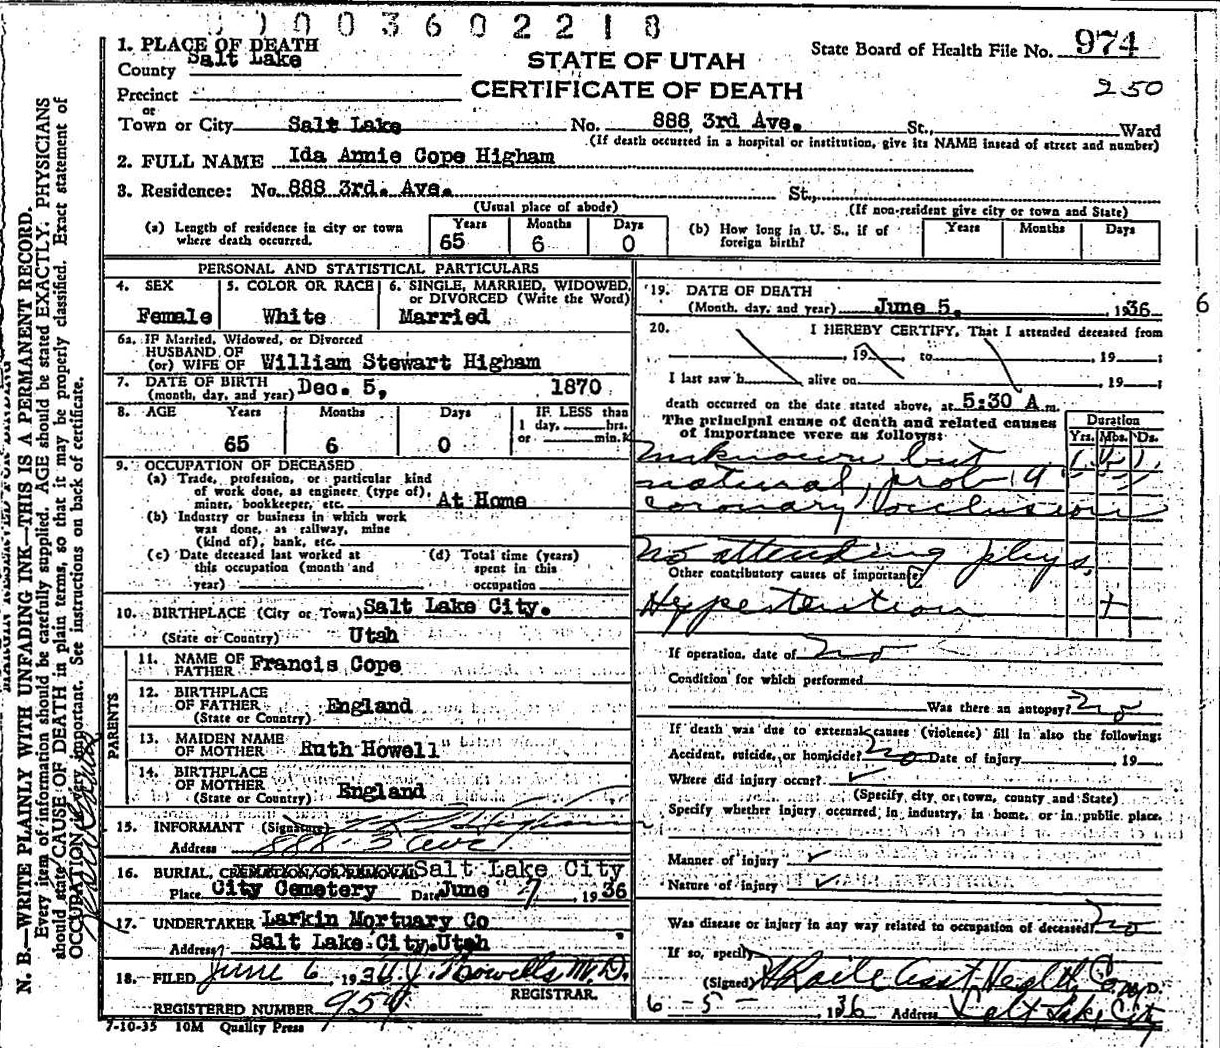 0 0 0 3 6 0 2 2 1 8
1. PLACE OF DEATH
County Salt Lake
Precinct
or
Town or City Salt Lake No. 888 3rd Ave. St., Ward
(If death occurred in a hospital or institution, give its NAME instead of street and number)
STATE OF UTAH
CERTIFICATE OF DEATH
State Board of Health File No. 974
250
2. FULL NAME Ida Annie Cope Higham
3. Residence: No. 888 3rd. Ave. St.,
(Usual place of abode) (If non-resident give city or town and State)
(a) Length of residence in city or town where death occurred. Years 65 Months 6 Days 0
(b) How long in U. S., if of foreign birth? Years Months Days
PERSONAL AND STATISTICAL PARTICULARS
4. SEX Female
5. COLOR OR RACE White
6. SINGLE, MARRIED, WIDOWED, or DIVORCED (Write the Word) Married
6a. IF Married, Widowed, or Divorced
HUSBAND OF
(or) WIFE OF William Stewart Higham
7. DATE OF BIRTH
(month, day, and year) Dec. 5, 1870
8. AGE Years 65 Months 6 Days 0
IF LESS than
1 day, hrs.
or min.
9. OCCUPATION OF DECEASED
(a) Trade, profession, or particular kind
of work done, as engineer (type of),
miner, bookkeeper, etc. At Home
(b) Industry or business in which work
was done, as railway, mine
(kind of), bank, etc.
(c) Date deceased last worked at
this occupation (month and
year)
(d) Total time (years)
spent in this
occupation
10. BIRTHPLACE (City or Town) Salt Lake City.
(State or Country) Utah
PARENTS
11. NAME OF
FATHER Francis Cope
12. BIRTHPLACE
OF FATHER England
(State or Country)
13. MAIDEN NAME
OF MOTHER Ruth Howell
14. BIRTHPLACE
OF MOTHER England
(State or Country)
15. INFORMANT (Signature) Higham
Address 888-3 Ave
16. BURIAL, CREMATION OR REMOVAL Salt Lake City
Place City Cemetery Date June 7, 1936
17. UNDERTAKER Larkin Mortuary Co
Address Salt Lake City, Utah
18. FILED June 6, 1936
M.D.
REGISTRAR.
REGISTERED NUMBER 954
7-10-35 10M Quality Press
19. DATE OF DEATH
(Month, day, and year) June 5, 1936
20. I HEREBY CERTIFY, That I attended deceased from
, 19 , to , 19 ;
I last saw h alive on , 19 ;
death occurred on the date stated above, at 5:30 A m.
The principal cause of death and related causes
of importance were as follows:
Duration
Yrs. Mos. Ds.
Unknown but
natural, prob
coronary occlusion
No attending phys.
Other contributory causes of importance:
Hypertension +
If operation, date of no
Condition for which performed
Was there an autopsy? no
If death was due to external causes (violence) fill in also the following:
Accident, suicide, or homicide? no Date of injury , 19
Where did injury occur?
(Specify city or town, county and State)
Specify whether injury occurred in industry, in home, or in public place.
Manner of injury
Nature of injury
Was disease or injury in any way related to occupation of deceased? no
If so, specify
(Signed) Asst Health Com M.D.
6-5- 1936 Address Salt Lake City
6
N. B.—WRITE PLAINLY WITH UNFADING INK—THIS IS A PERMANENT RECORD.
Every item of information should be carefully supplied. AGE should be stated EXACTLY. PHYSICIANS
should state CAUSE OF DEATH in plain terms, so that it may be properly classified. Exact statement of
OCCUPATION is very important. See instructions on back of certificate.